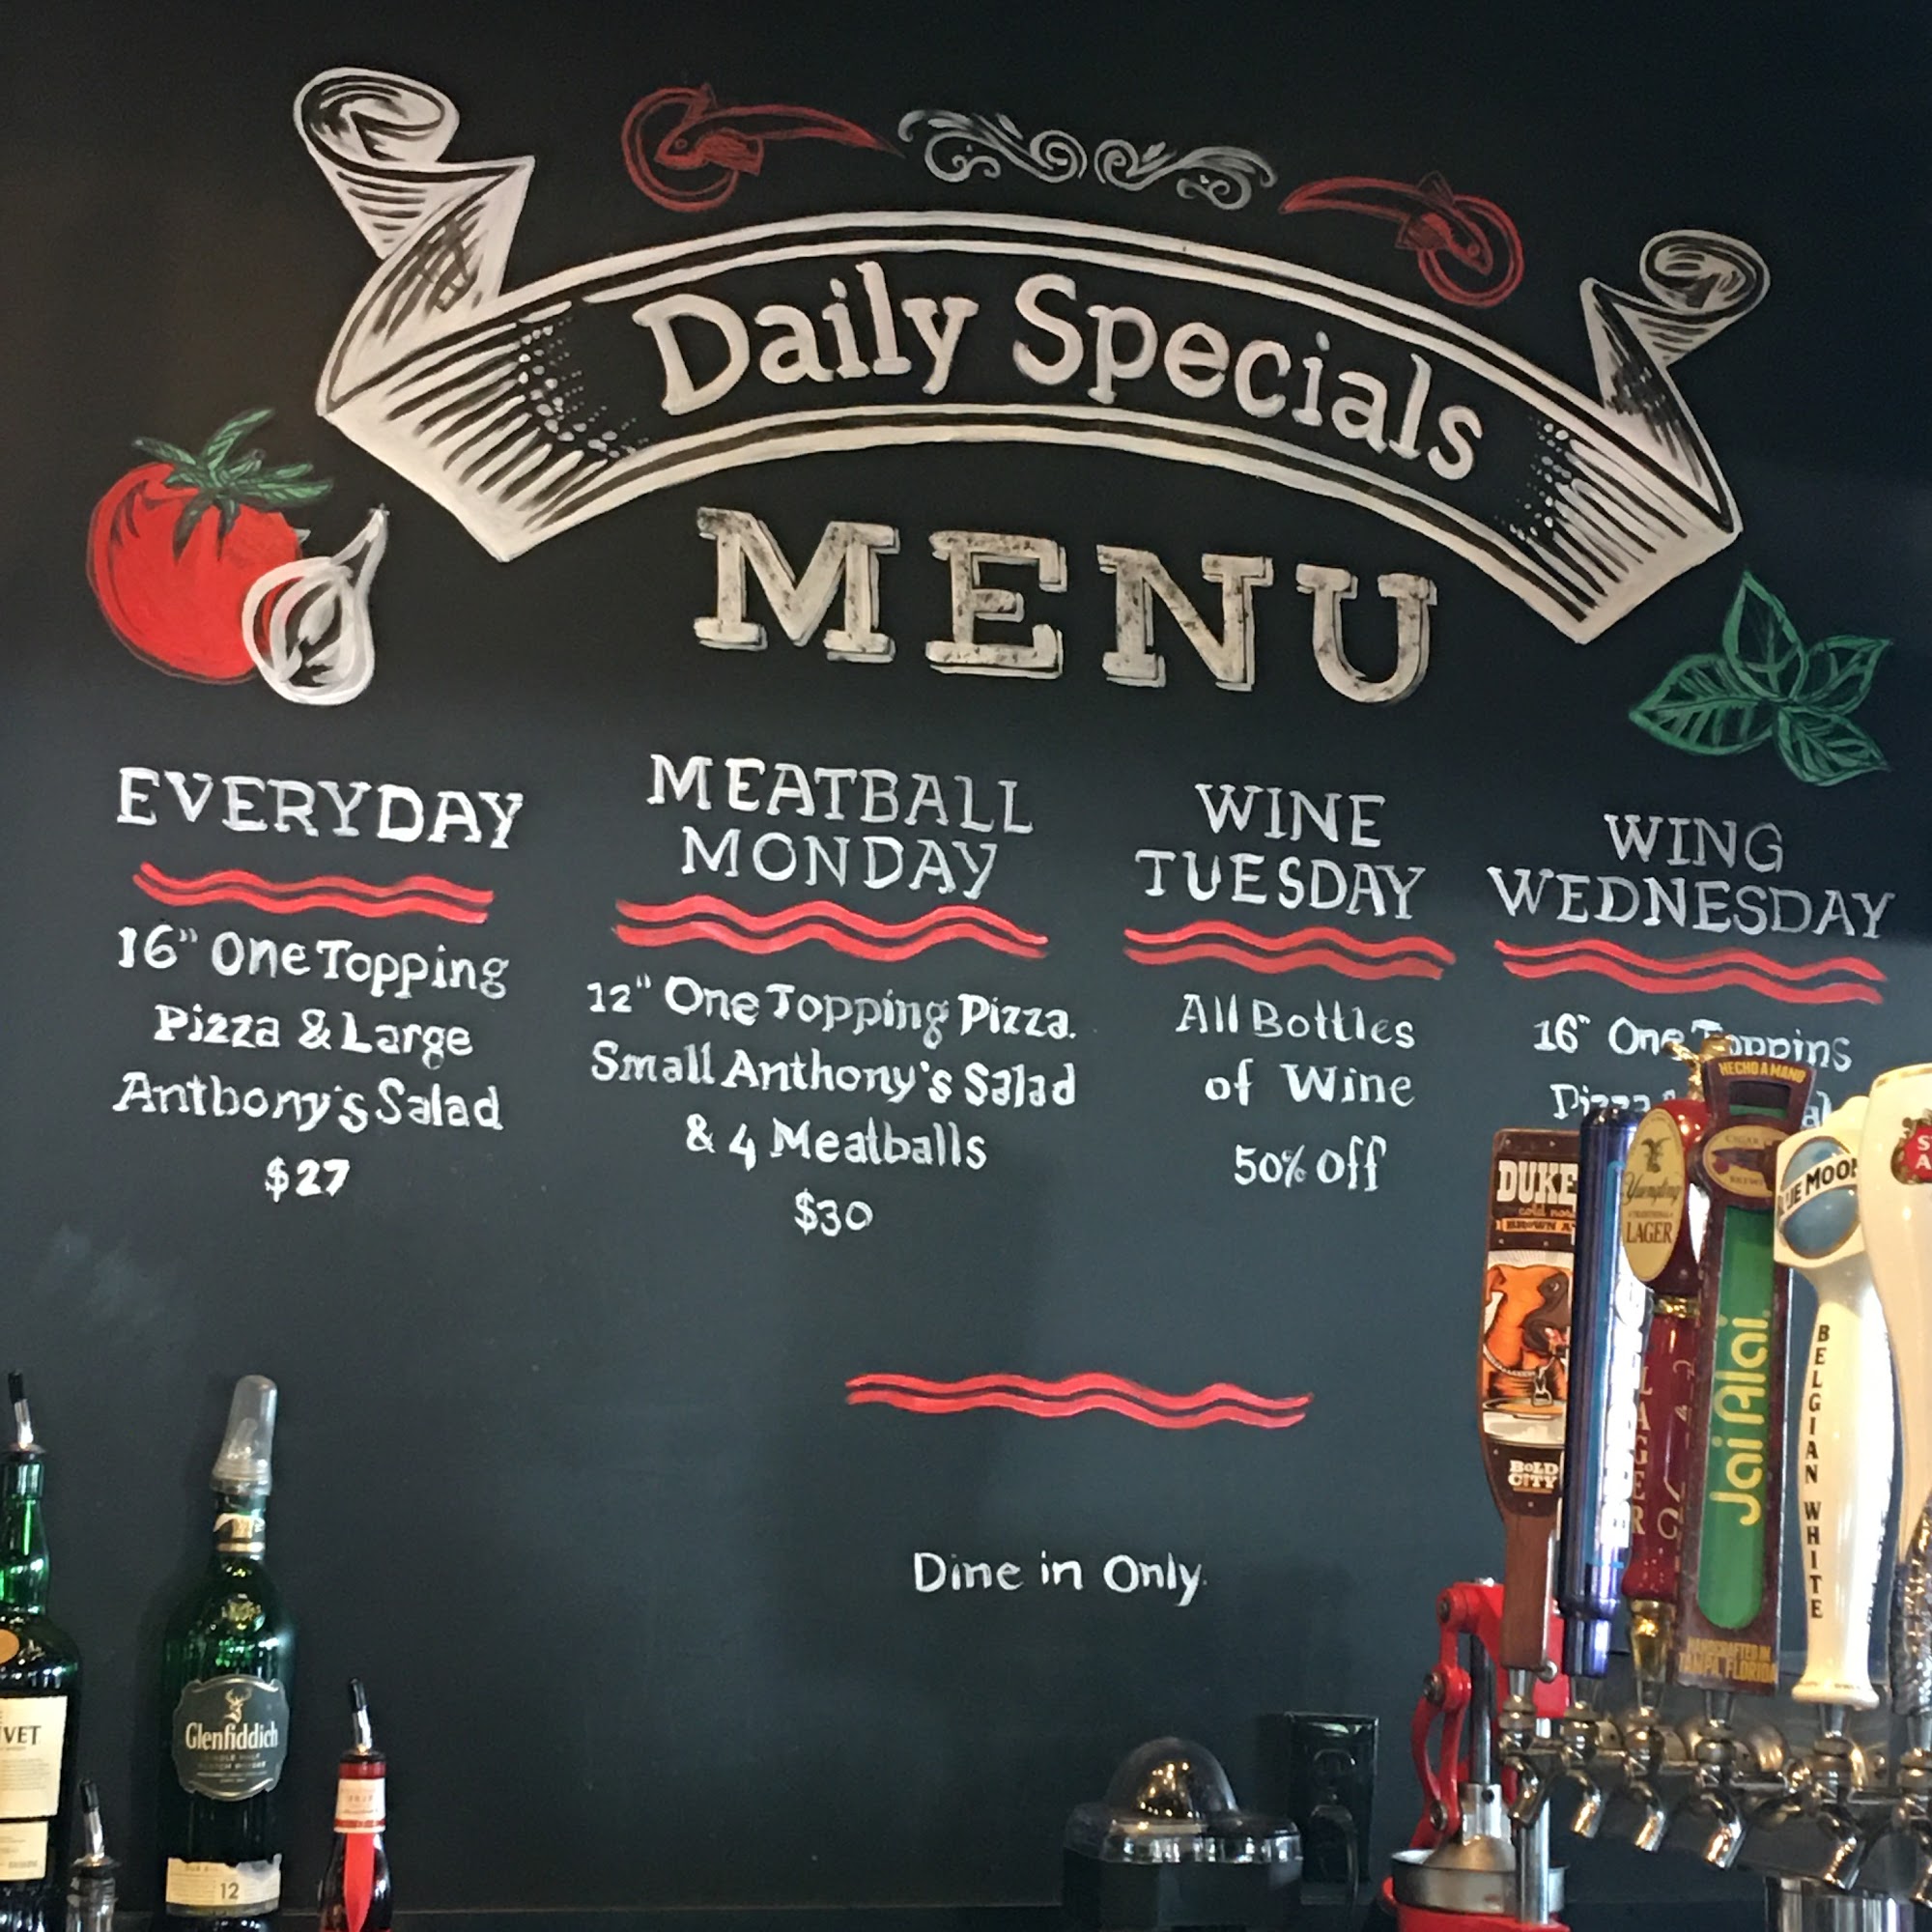 Daily Specials
MENU
EVERYDAY
16" One Topping
Pizza & Large
Anthony's Salad
$27
MEATBALL
MONDAY
12" One Topping Pizza.
Small Anthony's Salad
& 4 Meatballs
$30
WINE
TUESDAY
All Bottles
of Wine
50% Off
WING
WEDNESDAY
16" One Topping
Pizza
Dine in Only.
DUKE
BROWN
BOLD
CITY
Yuengling
TRADITIONAL
LAGER
LAGER
HECHO A MANO
CIGAR
Jai Alai
HANDCRAFTED IN
TAMPA, FLORIDA
BLUE MOON
BELGIAN WHITE
Glenfiddich
SINGLE MALT
SCOTCH WHISKY
12